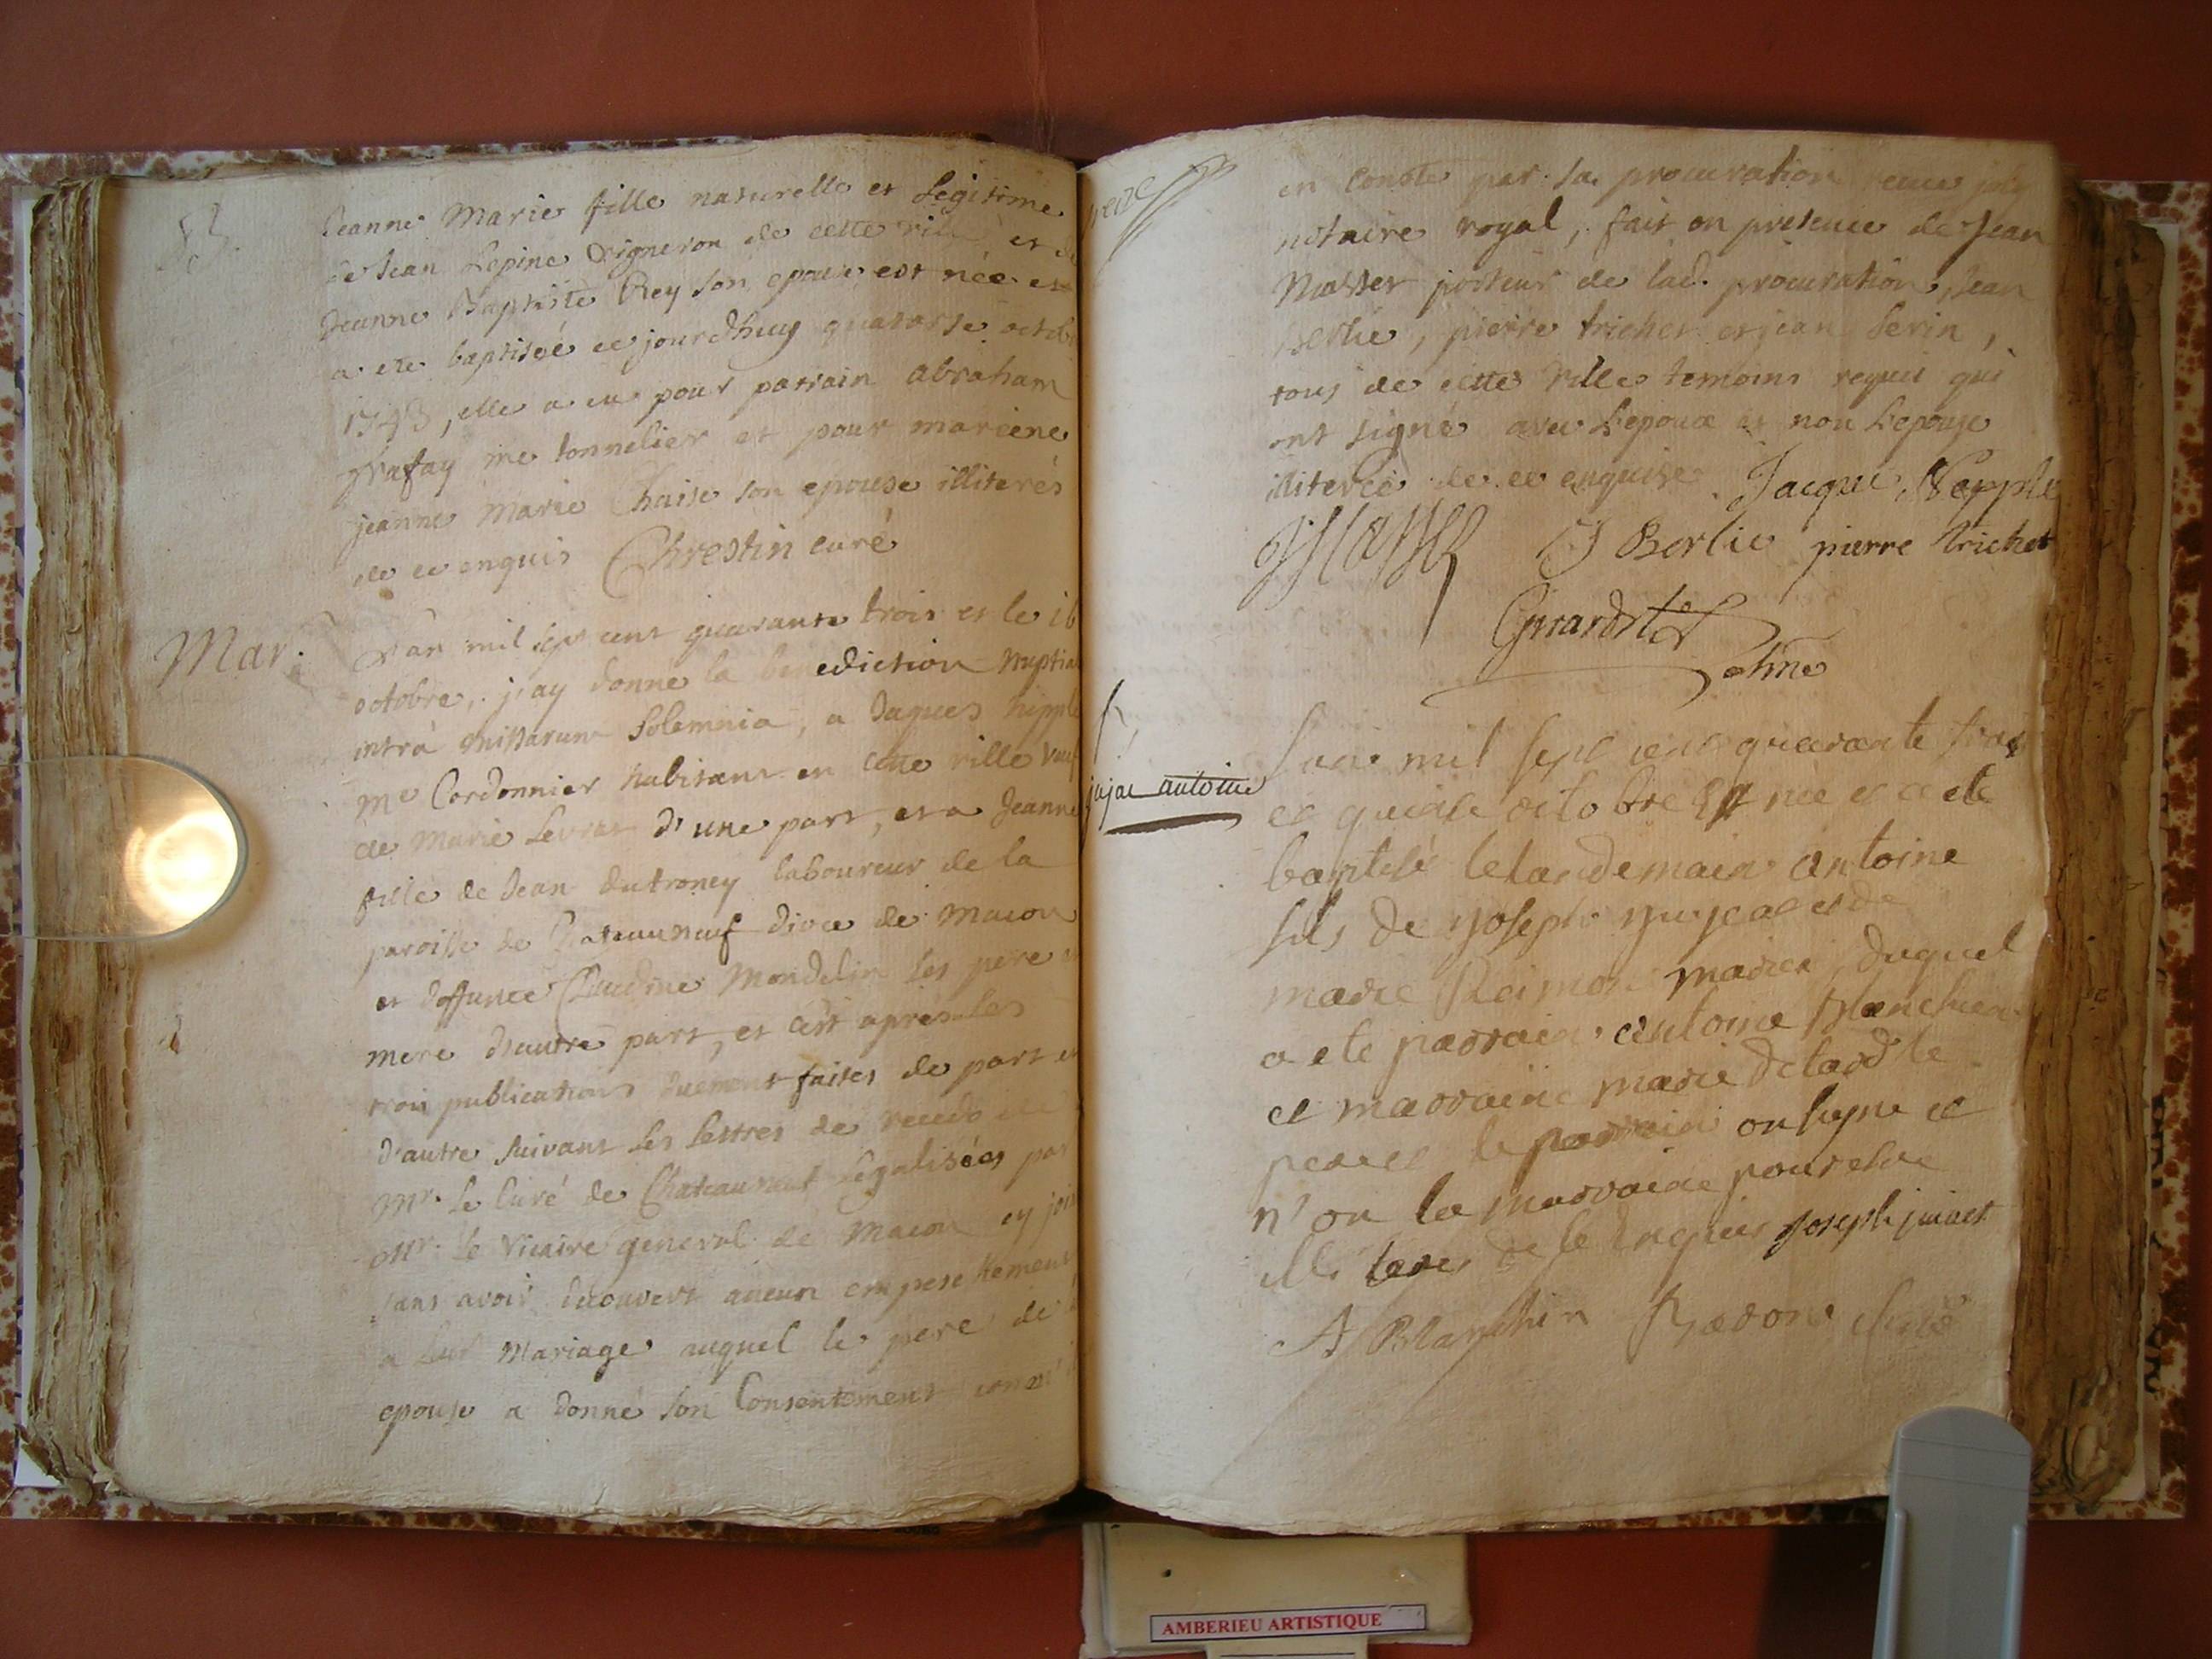 Jeanne Marie fille naturelle et Legitime
de Jean Lepine vigneron de cette ville et de
Jeanne Baptiste Rey son epouse est née et
a ete baptisée ce jourdhuy quatorse octob
1743, elle a eu pour parrain abraham
me tonnelier et pour mareine
jeanne Marie Chaise son epouse illiterés
de ce enquis Chrestin curé
Mar.
L'an mil sept cent quarante trois et le 16
octobre, j'ay donné la benediction Nuptia
intrà missarum Solemnia, a Jaques nipple
me Cordonnier habitant en cette ville veuf
de Marie Levrat d'une part, et a Jeanne
fille de Jean dutroncy laboureur de la
paroisse de Chateauneuf dioce de Macon
et deffunte Claudine Mondelin ses pere et
mere d'autre part, et c'est apres les
trois publications duement faites de part et
d'autre suivant les lettres de recedo de
Mr. le Curé de Chateauneuf Légalisées par
Mr. le Vicaire general de Macon cy join
sans avoir decouvert aucun empeschement
a leur Mariage auquel le pere de l
epouse a donné son Consentement comm
en conste par sa procuration receue joly
notaire royal, fait en presence de Jean
Masser porteur de lad. procuration, Jean
Berlie, pierre trichet et jean Serin,
tous de cette ville temoins requis qui
ont signé avec L'epoux et non L'epouse
illiterée de ce enquise. Jacque Nepple
J Berlie pierre trichet
Girardet
jujat antoine
Lan mil sept cent quarante trois
et quinse octobre est née et a ete
baptisé lelandemain antoine
fils de Joseph jujeat et de
marie Reimon mariés, duquel
a ete parrain antoine Blanchin
et marraine marie delard le
pere et le parrain on signe et
n'on la marraine pour etre
illiteres de ce Enquis Joseph jujact
A Blanchin Ravon Curé
AMBERIEU ARTISTIQUE